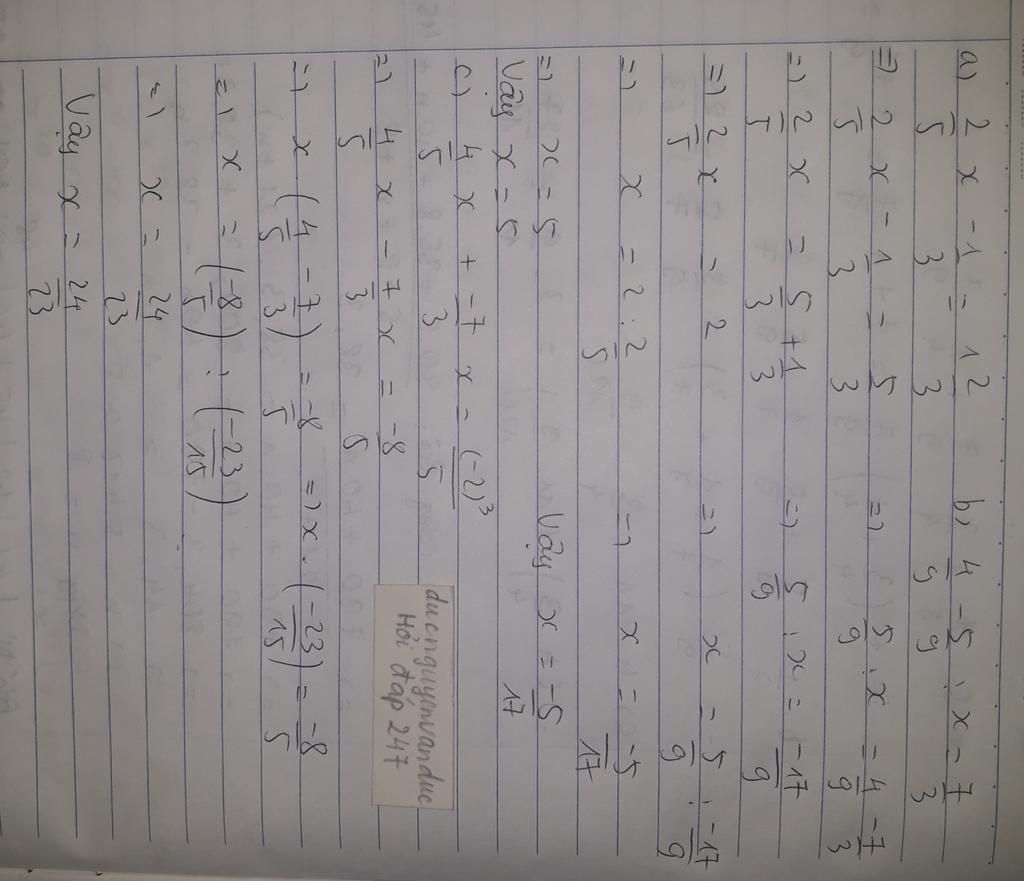 a) 2/5 x - 1/3 = 1 2/3
=> 2/5 x - 1/3 = 5/3
=> 2/5 x = 5/3 + 1/3
=> 2/5 x = 2
=> x = 2 : 2/5
=> x = 5
Vậy x = 5
b) 4/9 - 5/9 : x = 7/3
=> 5/9 : x = 4/9 - 7/3
=> 5/9 : x = -17/9
=> x = 5/9 : -17/9
=> x = -5/17
Vậy x = -5/17
c) 4/5 x + -7/3 x = (-2)³/5
=> 4/5 x - 7/3 x = -8/5
=> x (4/5 - 7/3) = -8/5 => x . (-23/15) = -8/5
=> x = (-8/5) : (-23/15)
=> x = 24/23
Vậy x = 24/23
ducnguyenvanduc
Hỏi đáp 247